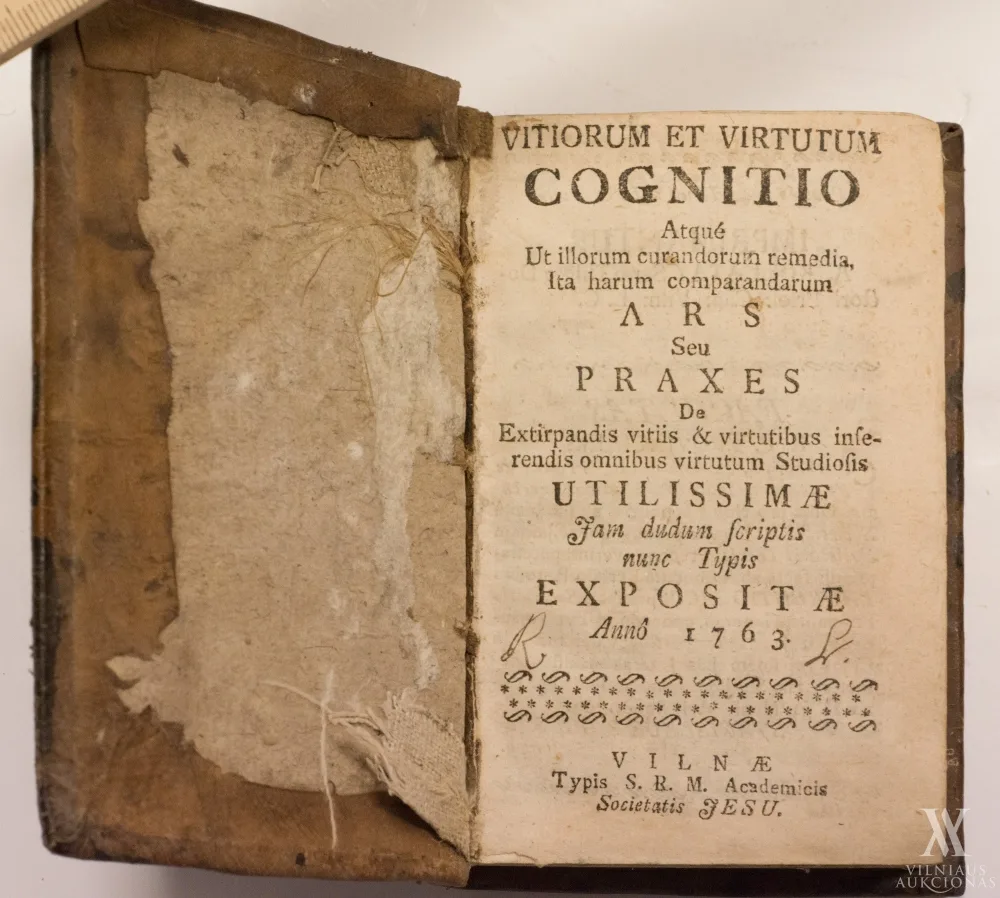 VITIORUM ET VIRTUTUM
COGNITIO
Atqué
Ut illorum curandorum remedia,
Ita harum comparandarum
ARS
Seu
PRAXES
De
Extirpandis vitiis & virtutibus inſe-
rendis omnibus virtutum Studioſis
UTILISSIMÆ
Jam dudum ſcriptis
nunc Typis
EXPOSITÆ
Annô 1763.
R. L.
VILNÆ
Typis S. R. M. Academicis
Societatis JESU.
VILNIAUS
AUKCIONAS